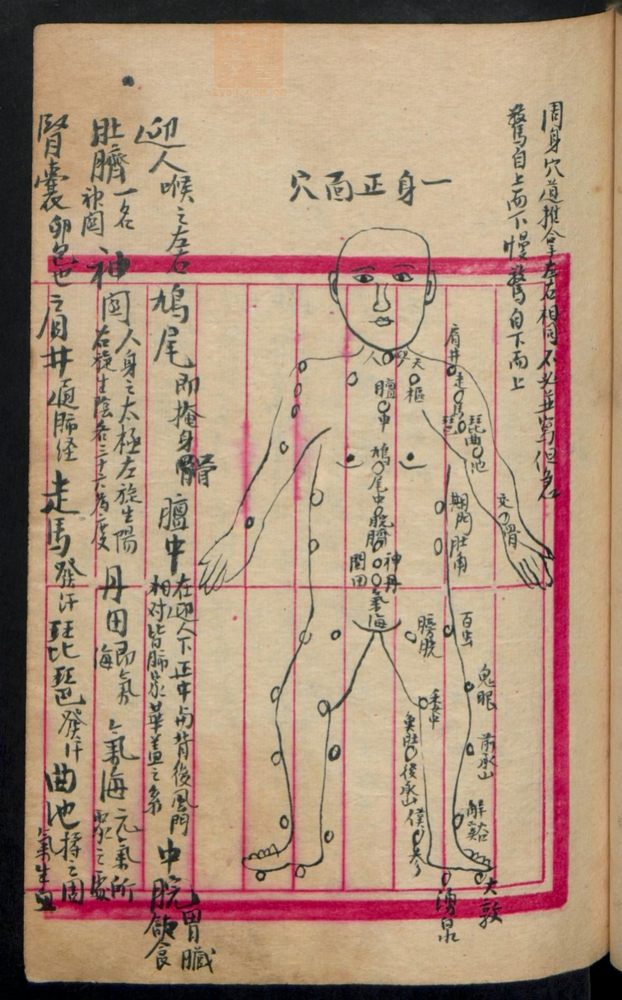 周身穴道推拿左右相同不必並寫但急
驚自上而下慢驚自下而上
一身正面穴
人迎
天
樞
膻
中
鳩尾
中脘
臍
神闕
丹田
氣海
肩井
走馬
琵琶
曲池
交骨
期門
肚角
膀胱
百虫
鬼眼
委中
前承山
魚肚
後承山
解谿
僕參
大敦
湧泉
迎人喉之左右 鳩尾即掩身骨 膻中在迎人下正中與背後風門相對皆肺家華蓋之系 中脘胃臟飲食
肚臍一名神闕 神闕人身之太極左旋生陽右旋生陰各三十六為度 丹田即氣海 氣海元氣所聚之處
腎囊卵包也 肩井通肺經 走馬發汗 琵琶發汗 曲池揉之固氣生血